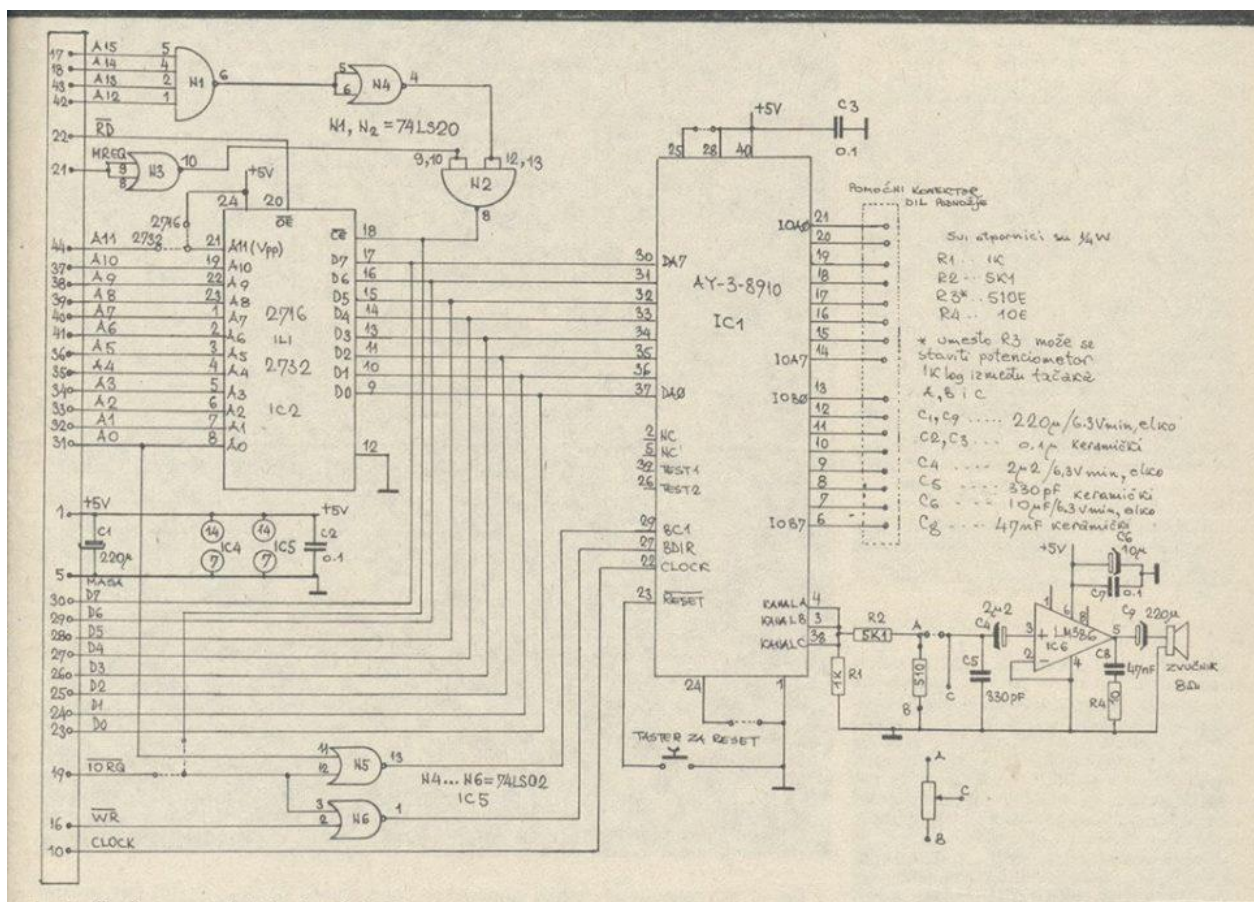 17 A15 5
18 A14 4
43 A13 2
42 A12 1
N1 6
5 6 N4 4
N1, N2 = 74LS20
22 RD
21 MREQ 9 8 N3 10
9,10 12,13
N2
8
+5V
24 20
OE
2716
2732
44 A11 21 A11 (Vpp)
37 A10 19 A10
38 A9 22 A9
39 A8 23 A8
40 A7 1 A7
41 A6 2 A6
36 A5 3 A5
35 A4 4 A4
34 A3 5 A3
33 A2 6 A2
32 A1 7 A1
31 A0 8 A0
2716
ILI
2732
IC2
CE 18
D7 17
D6 16
D5 15
D4 14
D3 13
D2 11
D1 10
D0 9
12
1 +5V +5V
C1
220μ
14 14
IC4 IC5
7 7
C2
0.1
5 MASA
30 D7
29 D6
28 D5
27 D4
26 D3
25 D2
24 D1
23 D0
19 IORQ
16 WR
10 CLOCK
11
12 N5 13
3
2 N6 1
N4...N6=74LS02
IC5
+5V
C3
0.1
25 28 40
30 DA7
31
32
33
34
35
36
37 DA0
AY-3-8910
IC1
2 NC
5 NC
39 TEST1
26 TEST2
29 BC1
27 BDIR
22 CLOCK
23 RESET
24 1
TASTER ZA RESET
POMOĆNI KONEKTOR
DIL PODNOŽJE
IOA0 21
20
19
18
17
16
15
IOA7 14
IOB0 13
12
11
10
9
8
7
IOB7 6
KANAL A 4
KANAL B 3
KANAL C 38
Svi otpornici su 1/4 W
R1 .. 1K
R2 .. 5K1
R3* .. 510E
R4 .. 10E
* umesto R3 može se
staviti potenciometar
1K log između tačaka
A, B i C
C1, C9 ..... 220μ/6.3Vmin, elko
C2, C3 ... 0.1μ keramički
C4 .... 2μ2/6,3V min, elko
C5 ..... 330pF keramički
C6 ---- 10μF/6.3Vmin, elko
C8 ---- 47nF keramički
R2
5K1
R1
1K
A
510
B
C
C5
330pF
2μ2
C4
+5V
C6
10μ
C7 0.1
1 6 8
3 +
2 -
LM386
IC6
4
5
C9 220μ
C8
47nF
R4
10
ZVUČNIK
8Ω
A
C
B